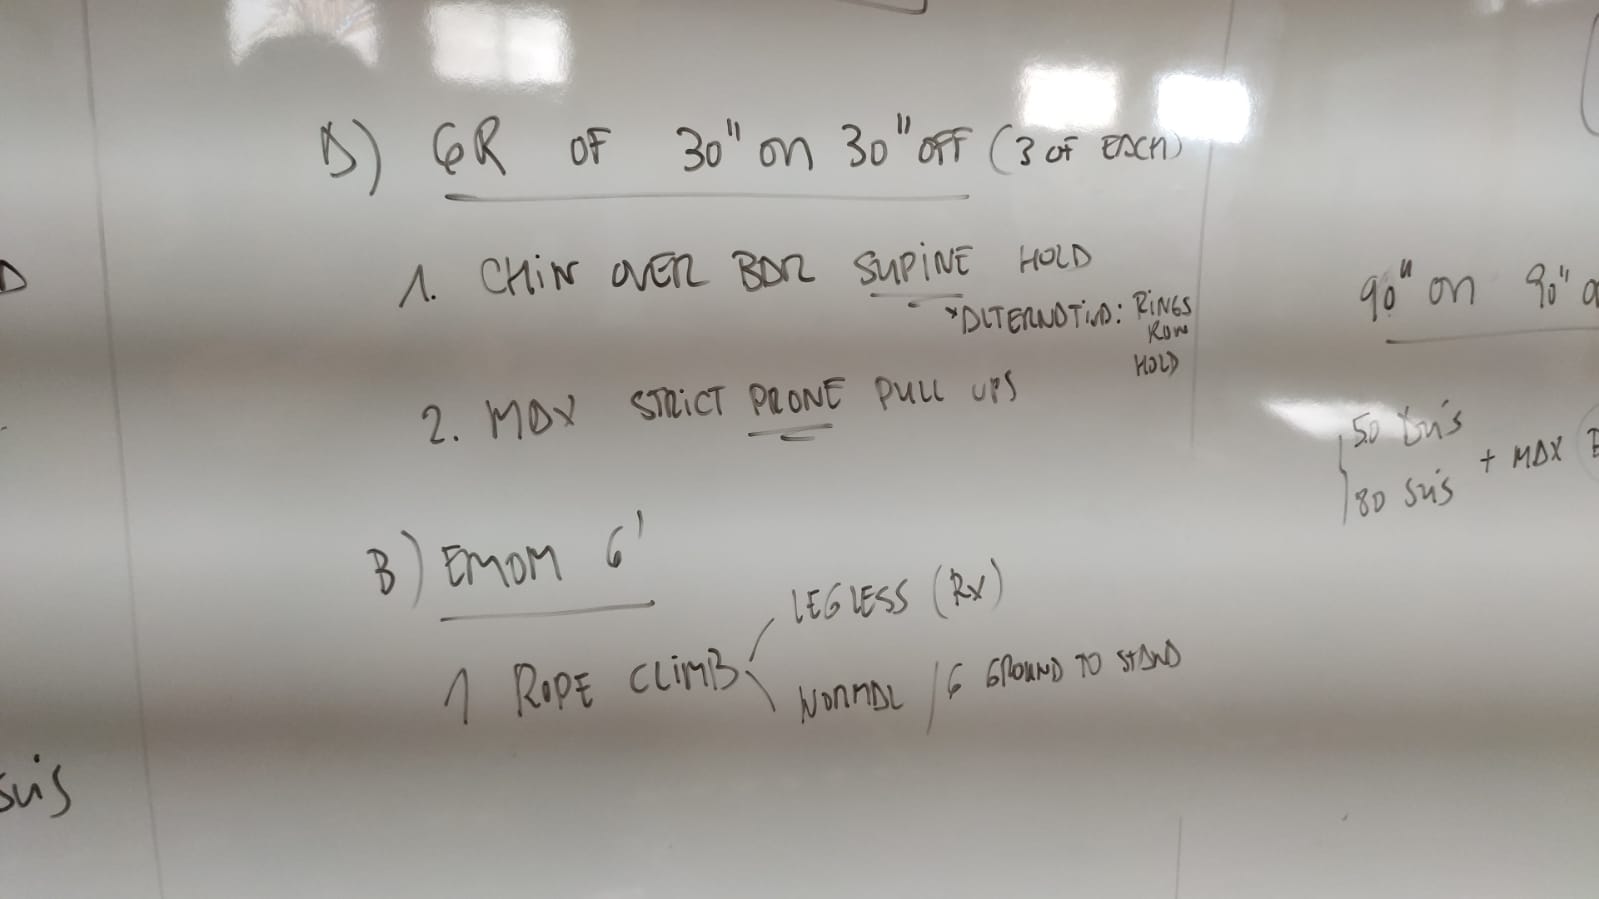 A) 6R OF 30" ON 30" OFF (3 OF EACH)
1. CHIN OVER BAR SUPINE HOLD
*ALTERNATIVA: RINGS
ROW
HOLD
2. MAX STRICT PRONE PULL UPS
B) EMOM 6'
1 ROPE CLIMB
LEGLESS (RX)
NORMAL / 6 GROUND TO STAND
90" ON 90"
50 DU'S
80 SU'S
+ MAX
SU'S